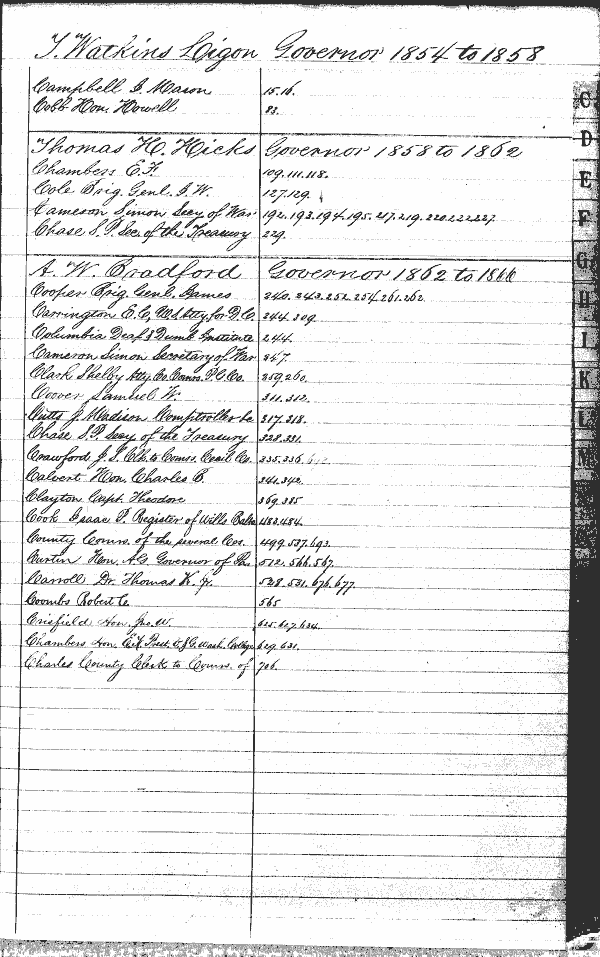 T. Watkins Ligon Governor 1854 to 1858
Campbell J. Mason 15.16.
Cobb Hon. Howell 83.
Thomas H. Hicks Governor 1858 to 1862
Chambers E.F. 109.111.118.
Cole Brig. Genl. J.W. 127.129.
Cameson Simon Secy of War 192.193.194.195.217.219.220.222.227
Chase S.P. Sec. of the Treasury 229.
A. W. Bradford Governor 1862 to 1866
Cooper Brig. Genl. James 240.243.252.254.261.262.
Carrington E.C. U.S. Atty. for D.C. 244.309.
Columbia Deaf & Dumb Institute 244.
Cameron Simon Secretary of War 247.
Clark Shelby Atty. Co. Comrs. P.G. Co. 259.260.
Coover Samuel W. 311.312.
Cutts J. Madison Comptroller &c 317.318.
Chase S.P. Secy of the Treasury 328.331.
Crawford J.S. Clk. to Comrs. Cecil Co. 335.336.
Calvert Hon. Charles B. 341.342.
Clayton Capt. Theodore 369.385
Cook Isaac P. Register of Wills Balto 483.484.
County Comrs. of the several Cos. 499.537.693.
Curtin Hon. A.G. Governor of Pa. 512.566.567.
Carroll Dr. Thomas K. Jr. 528.531.676.677.
Coombs Robert C. 565
Crisfield Hon. Jno. W. 625.627.634.
Chambers Hon. E.F. Prest. Wash. College 629.631.
Charles County Clerk to Comrs. of 706.
C
D
E
F
G
H
I
K
L
M